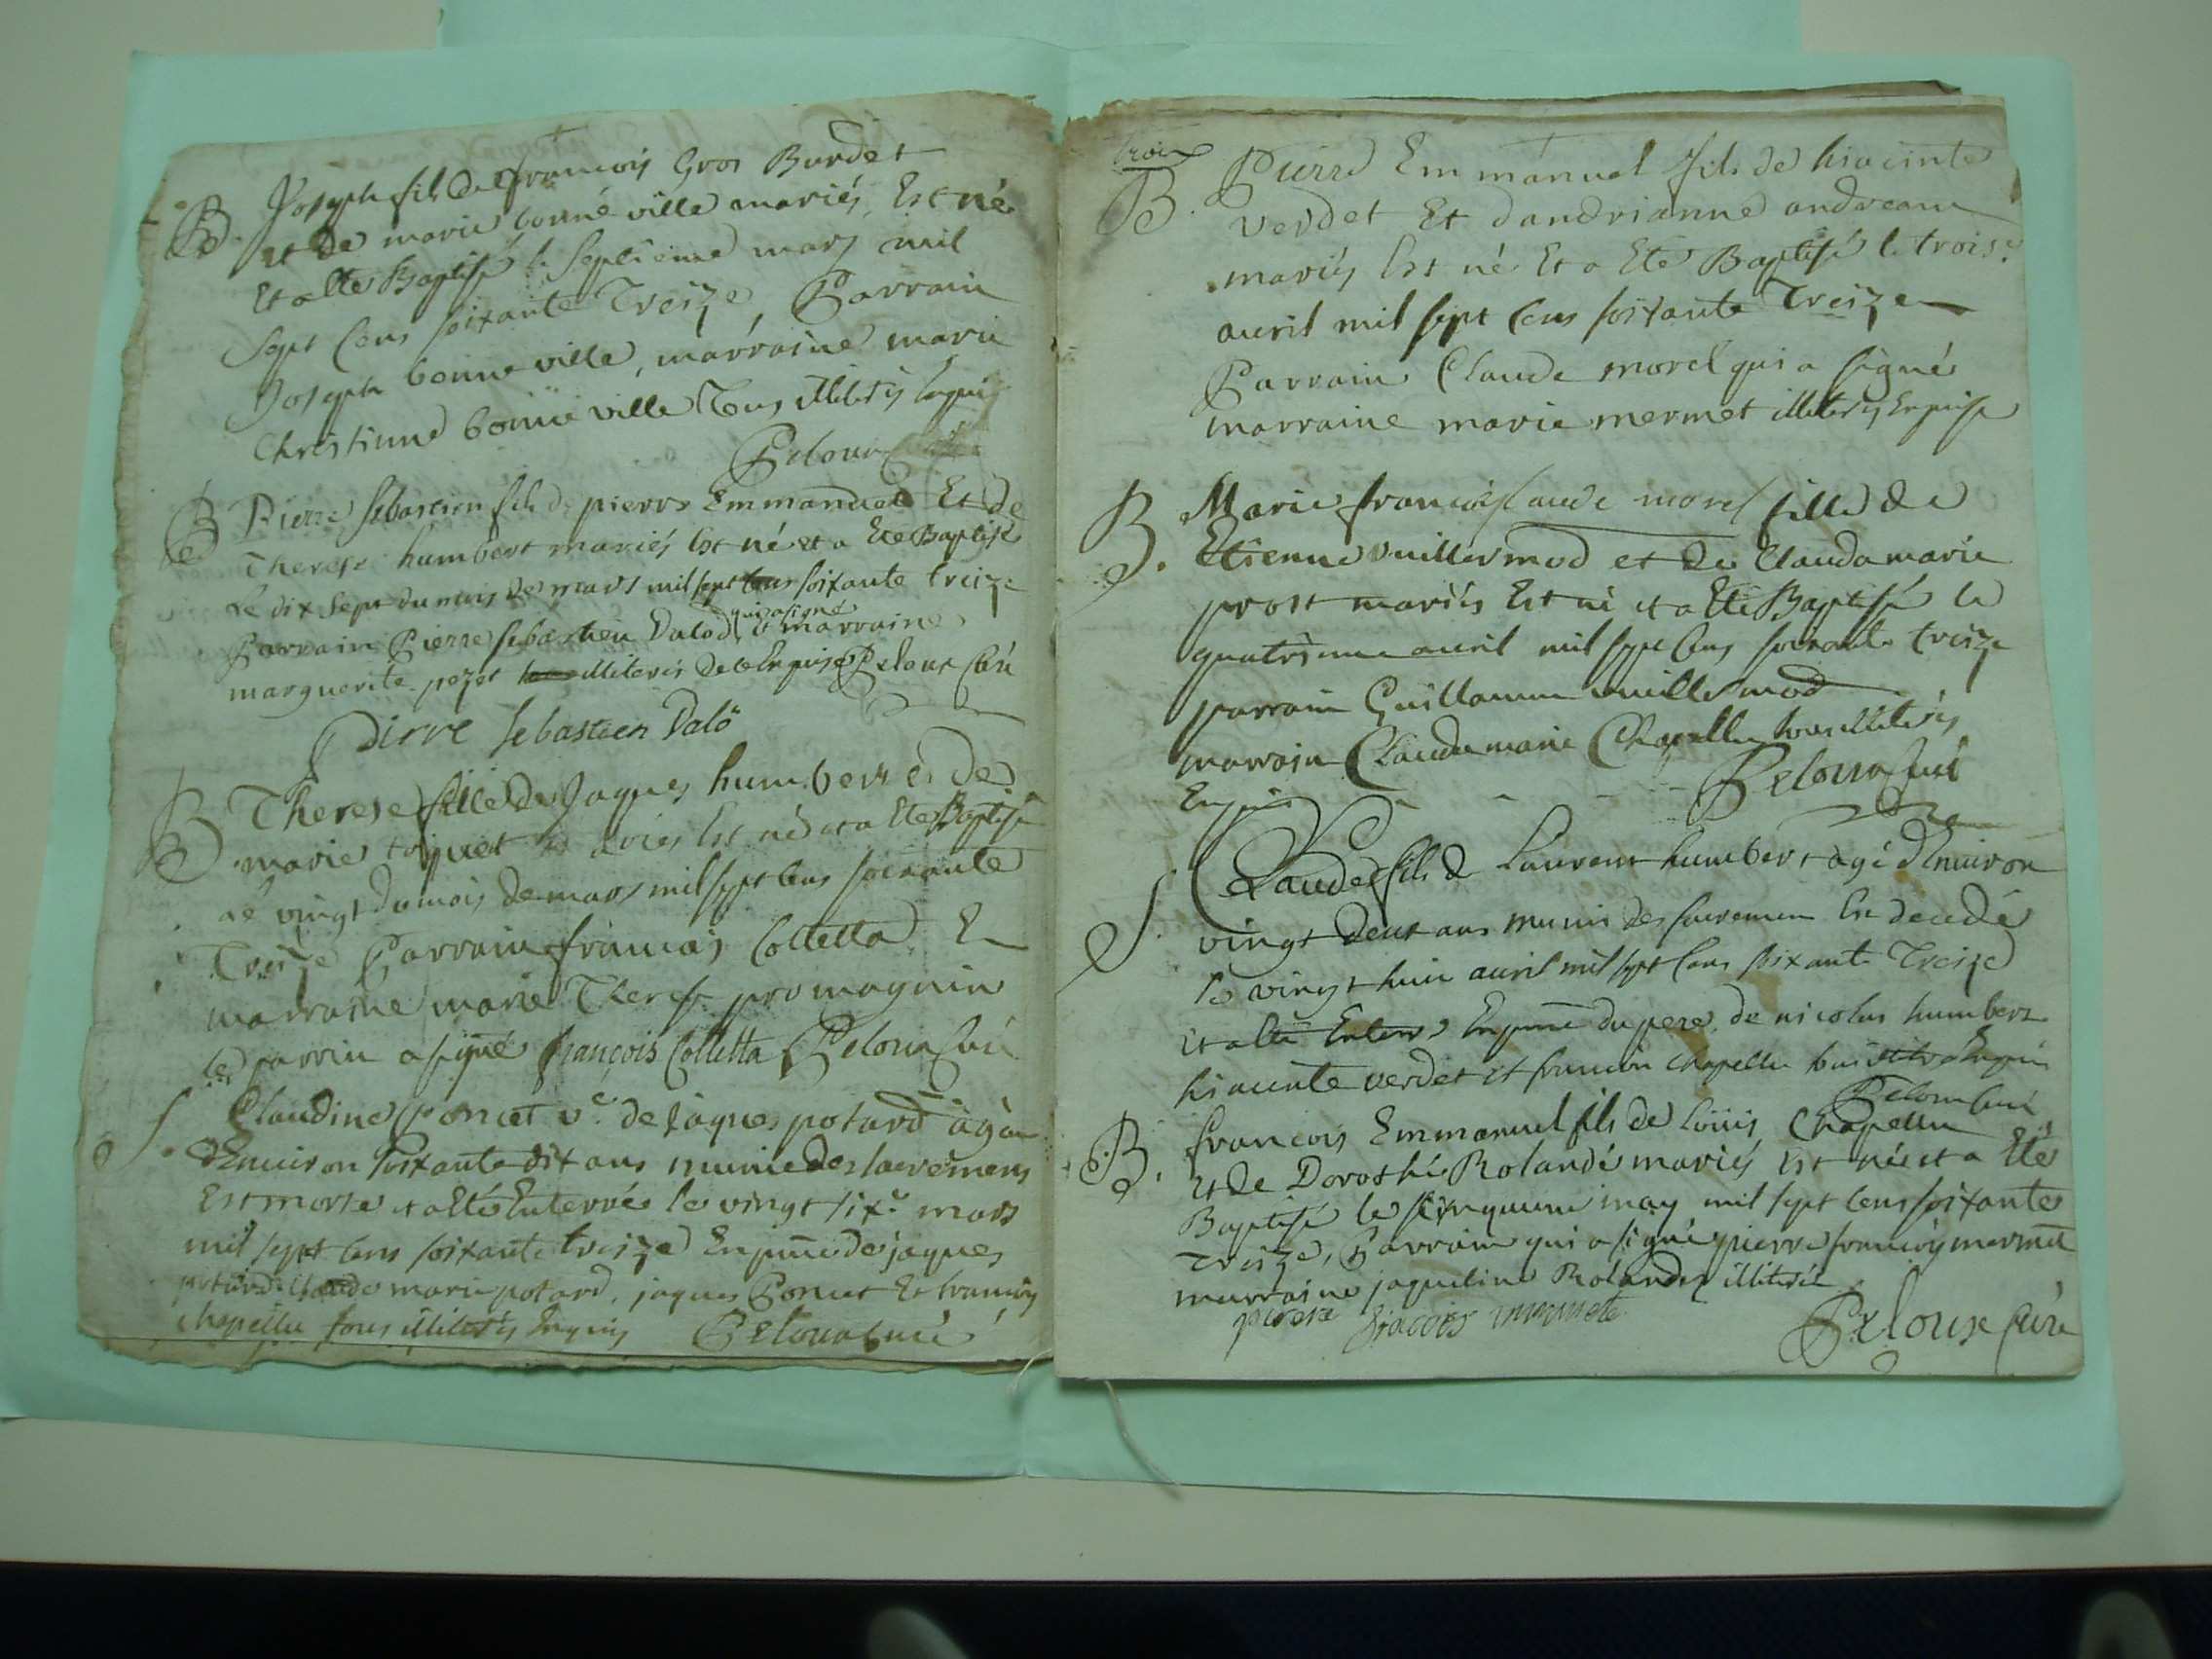 B. Joseph fils de francois Gros Burdet
et de marie bonne ville mariés, Est né
Et a Eté Baptisé le Septieme mars mil
Sept Cens soixante Treize, Parrain
Joseph bonne ville, marraine marie
Christinne bonne ville Tous illiterés
Peloux
B Pierre Sebastien fils de pierre Emmanuel Et de
Therese humbert mariés Est né et a Eté Baptisé
Le dix Sept du mois de mars mil sept Cens soixante treize
Parrain Pierre Sebastien Dalod qui a signé Et marraine
marguerite pezet illiterés de ce Enquise Peloux Curé
Pirre Sebastien Dalo
B Therese fille de Jaques humbert Et de
marie mariés Est né et a Eté Baptisé
le vingt du mois de mars mil sept Cens soixante
Treize Parrain francois Colletta Et
marraine marie Therese promagnin
le parrin a signé françois Colletta Peloux Curé
S. Claudine Poncet ve. de jaques potard agée
d'Environ soixante dix ans munie des sacremens
Est morte et a Eté Enterrée le vingt sixe. mars
mil sept Cens soixante treize En pnce de jaques
potard Claude marie potard, jaques Poncet Et francois
Chapellu tous illiterés Enquis Peloux Curé
trois
B. Pierre Emmanuel fils de hiacinte
Verdet Et d'andrianne andreane
mariés Est né Et a Eté Baptisé le trois.e
avril mil sept Cens soixante Treize
Parrain Claude morel qui a signé
marraine marie mermet illiterés Enquise
B. Marie francoise Claude morel fille de
Etienne vuillermod et de Clauda marie
prost mariés Est né et a Eté Baptisé le
quatrieme avril mil sept Cens soixante treize
parrain Guillaume vuillermod
marrain Claude marie Chapellu tous illiterés
Enquis Peloux Curé
S. Claude fils de Laurent humbert agé d'Environ
vingt deux ans munis des sacremen Est decedé
le vingt huit avril mil sept Cens soixante Treize
et a Eté Enterré En pnce du pere, de nicolas humbert
hiacinte verdet et francois Chapellu tous Enquis
Peloux Curé
B. francois Emmanuel fils de Loüis Chapellu
et de Dorothée Rolandé mariés Est née et a Eté
Baptisé le cinquieme may mil sept Cens soixante
Treize, Parrain qui a signé pierre francois mermet
marraine jaqueline Rolandez illiterée
Peloux Curé